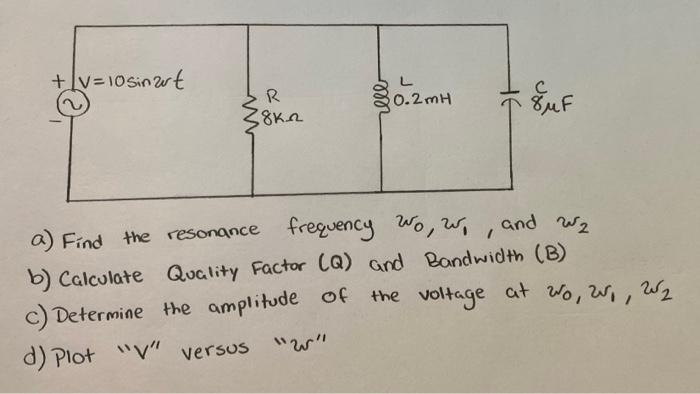 + V=10sinwt
-
R
8KΩ
L
0.2mH
C
8μF
a) Find the resonance frequency w₀, w₁, and w₂
b) Calculate Quality Factor (Q) and Bandwidth (B)
c) Determine the amplitude of the voltage at w₀, w₁, w₂
d) Plot "V" versus "w"